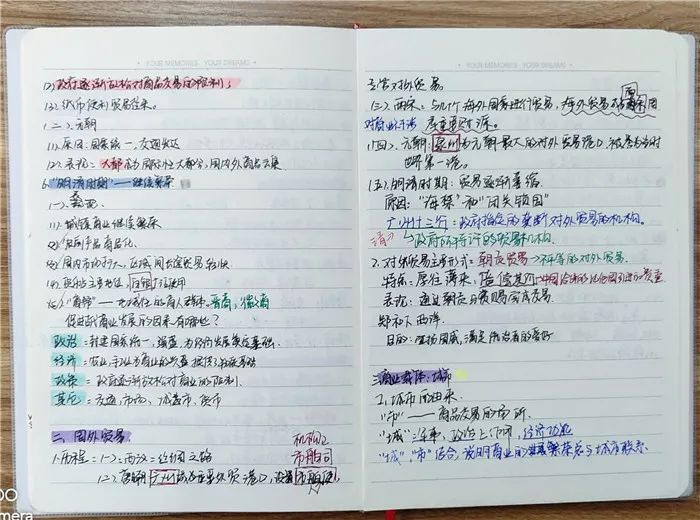 (2)政府逐渐放松对商品交易的限制;
(3)纸币便利贸易往来。
(二)元朝
(1)原因:国家统一,交通发达
(2)表现:大都成为国际性大都会,国内外商品云集
6.明清时期——继续繁荣
(一)表现:
(1)城镇商业继续繁荣
(2)农副产品商品化
(3)国内市场扩大,区域间长途贸易较快
(4)货币主要地位,白银广泛使用
(5)"商帮"——地域性的商人群体。晋商,徽商
促进古代商业发展的因素有哪些?
政治:封建国家统一,强盛,为经济发展奠定基础
经济:农业,手工业为商业的兴盛提供了物质基础
政策:政府逐渐放松对商业的限制。
其它:交通,市场,城县市,货币
二、国外贸易
机构
1.历程:(一)西汉:丝绸之路
市舶司
(二)唐朝广州成为主要外贸港口,设置市舶使,
主管对外贸易。
(三)两宋,与几十个海外国家进行贸易,海外贸易税南宋国
对商业的干涉 库重要财源。
(四)元朝:泉州为元朝最大的对外贸易港口,被誉为当时
世界第一港。
(五)明清时期:贸易逐渐萎缩
原因:"海禁"和"闭关锁国"
广州十三行:政府指定的垄断对外贸易的机构。
清 →政府所特许的贸易机构.
2.对外贸易主要形式:朝贡贸易→不等的对外贸易.
特点:厚往薄来,
表现:通过朝贡与赏赐完成交易
郑和下西洋
目的:宣扬国威,满足统治者的喜好
三.商业载体:城市
1.城市的由来
"市"——商品交易的场所.
"城":军事,政治上作用,经济功能
"城","市"结合,说明商业的发展繁荣总与城市联系.